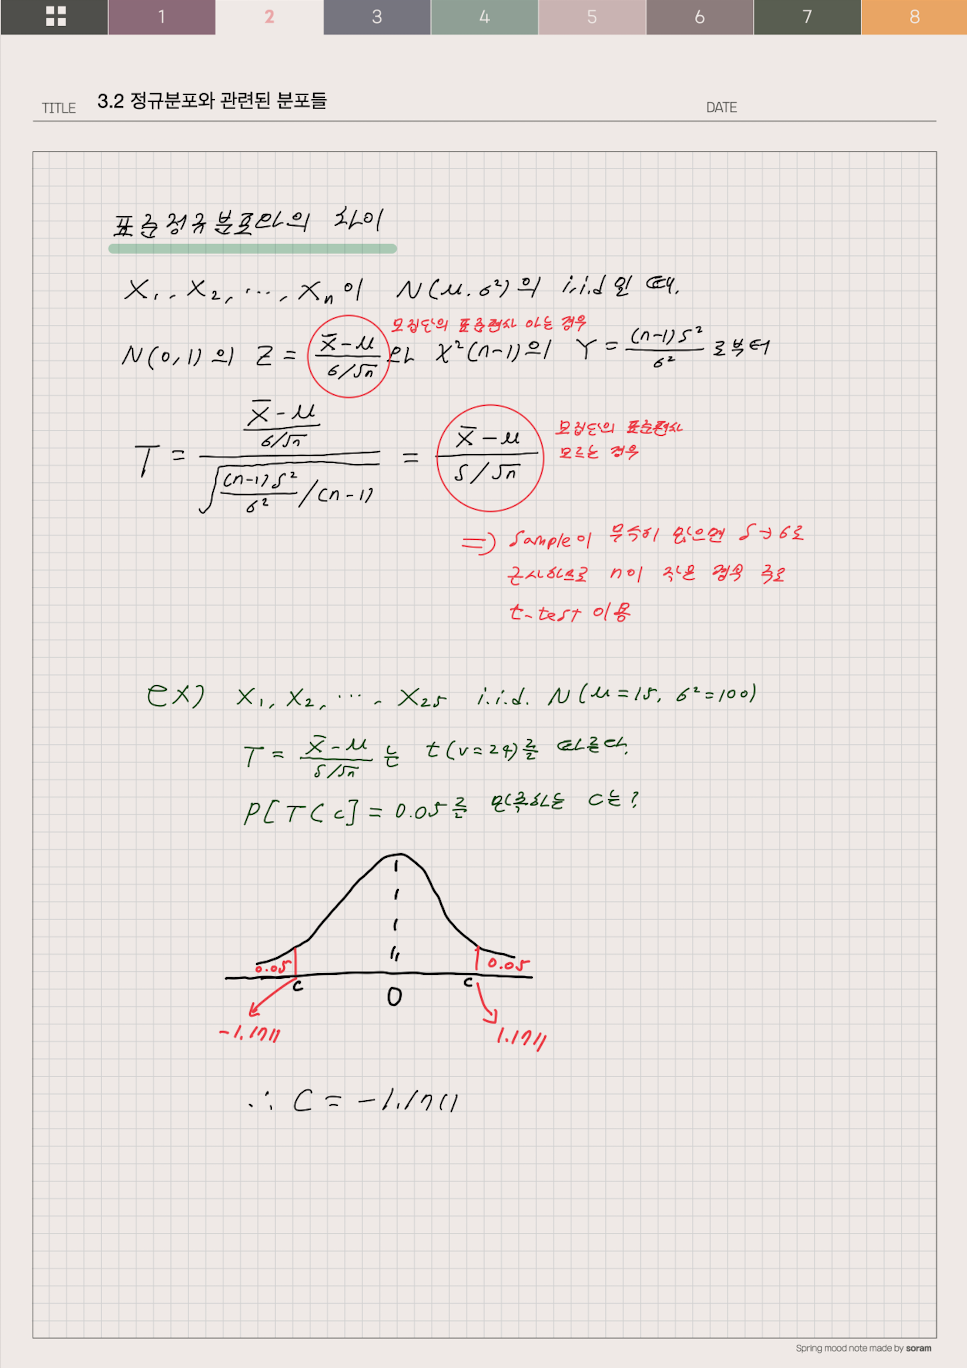 1 2 3 4 5 6 7 8
TITLE 3.2 정규분포와 관련된 분포들 DATE
표준정규분포와의 차이
X₁, X₂, ⋯, Xₙ이 N(μ, σ²)의 i.i.d일 때,
모집단의 표준편차 아는 경우
N(0,1)의 Z = (X̄-μ)/(σ/√n) 와 χ²(n-1)의 Y = (n-1)S²/σ² 로부터
T = ((X̄-μ)/(σ/√n)) / √((n-1)S²/σ² /(n-1)) = (X̄-μ)/(S/√n)
모집단의 표준편차
모르는 경우
⇒ Sample이 무수히 많으면 S→σ로
근사하므로 n이 작은 경우 주로
t-test 이용
ex) X₁, X₂, ⋯, X₂₅ i.i.d. N(μ=15, σ²=100)
T = (X̄-μ)/(S/√n) 는 t(v=24)를 따른다.
P[T<c] = 0.05를 만족하는 c는?
0.05 0.05
c 0 c
-1.1711 1.1711
∴ C = -1.1711
Spring mood note made by soram